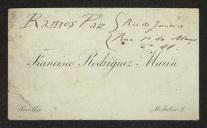 Ramos Paz { Rio de Janeiro
Rua 1º de Março
nº 41
Francisco Rodríguez Marín
Sevilla